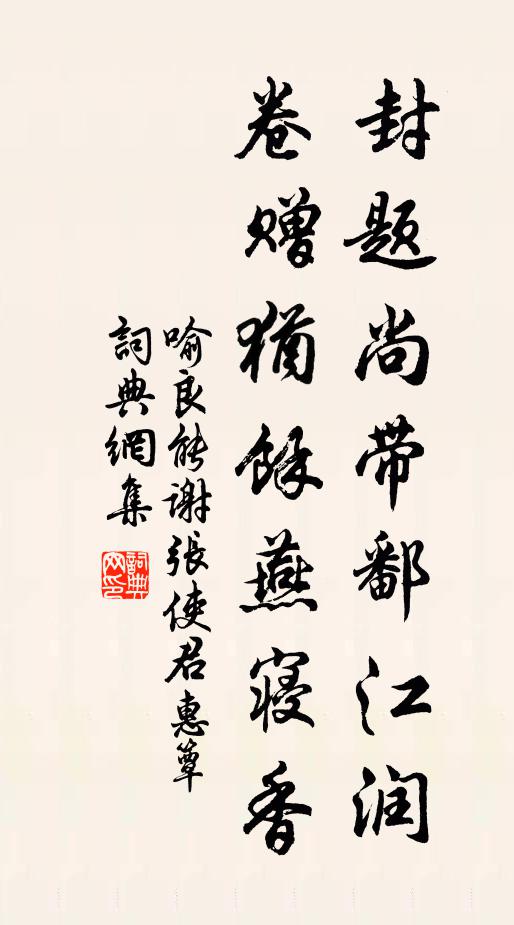 封题尚带鄱江润
卷赠犹馀燕寝香
喻良能谢張使君惠簟
詞典網集
詞典网印